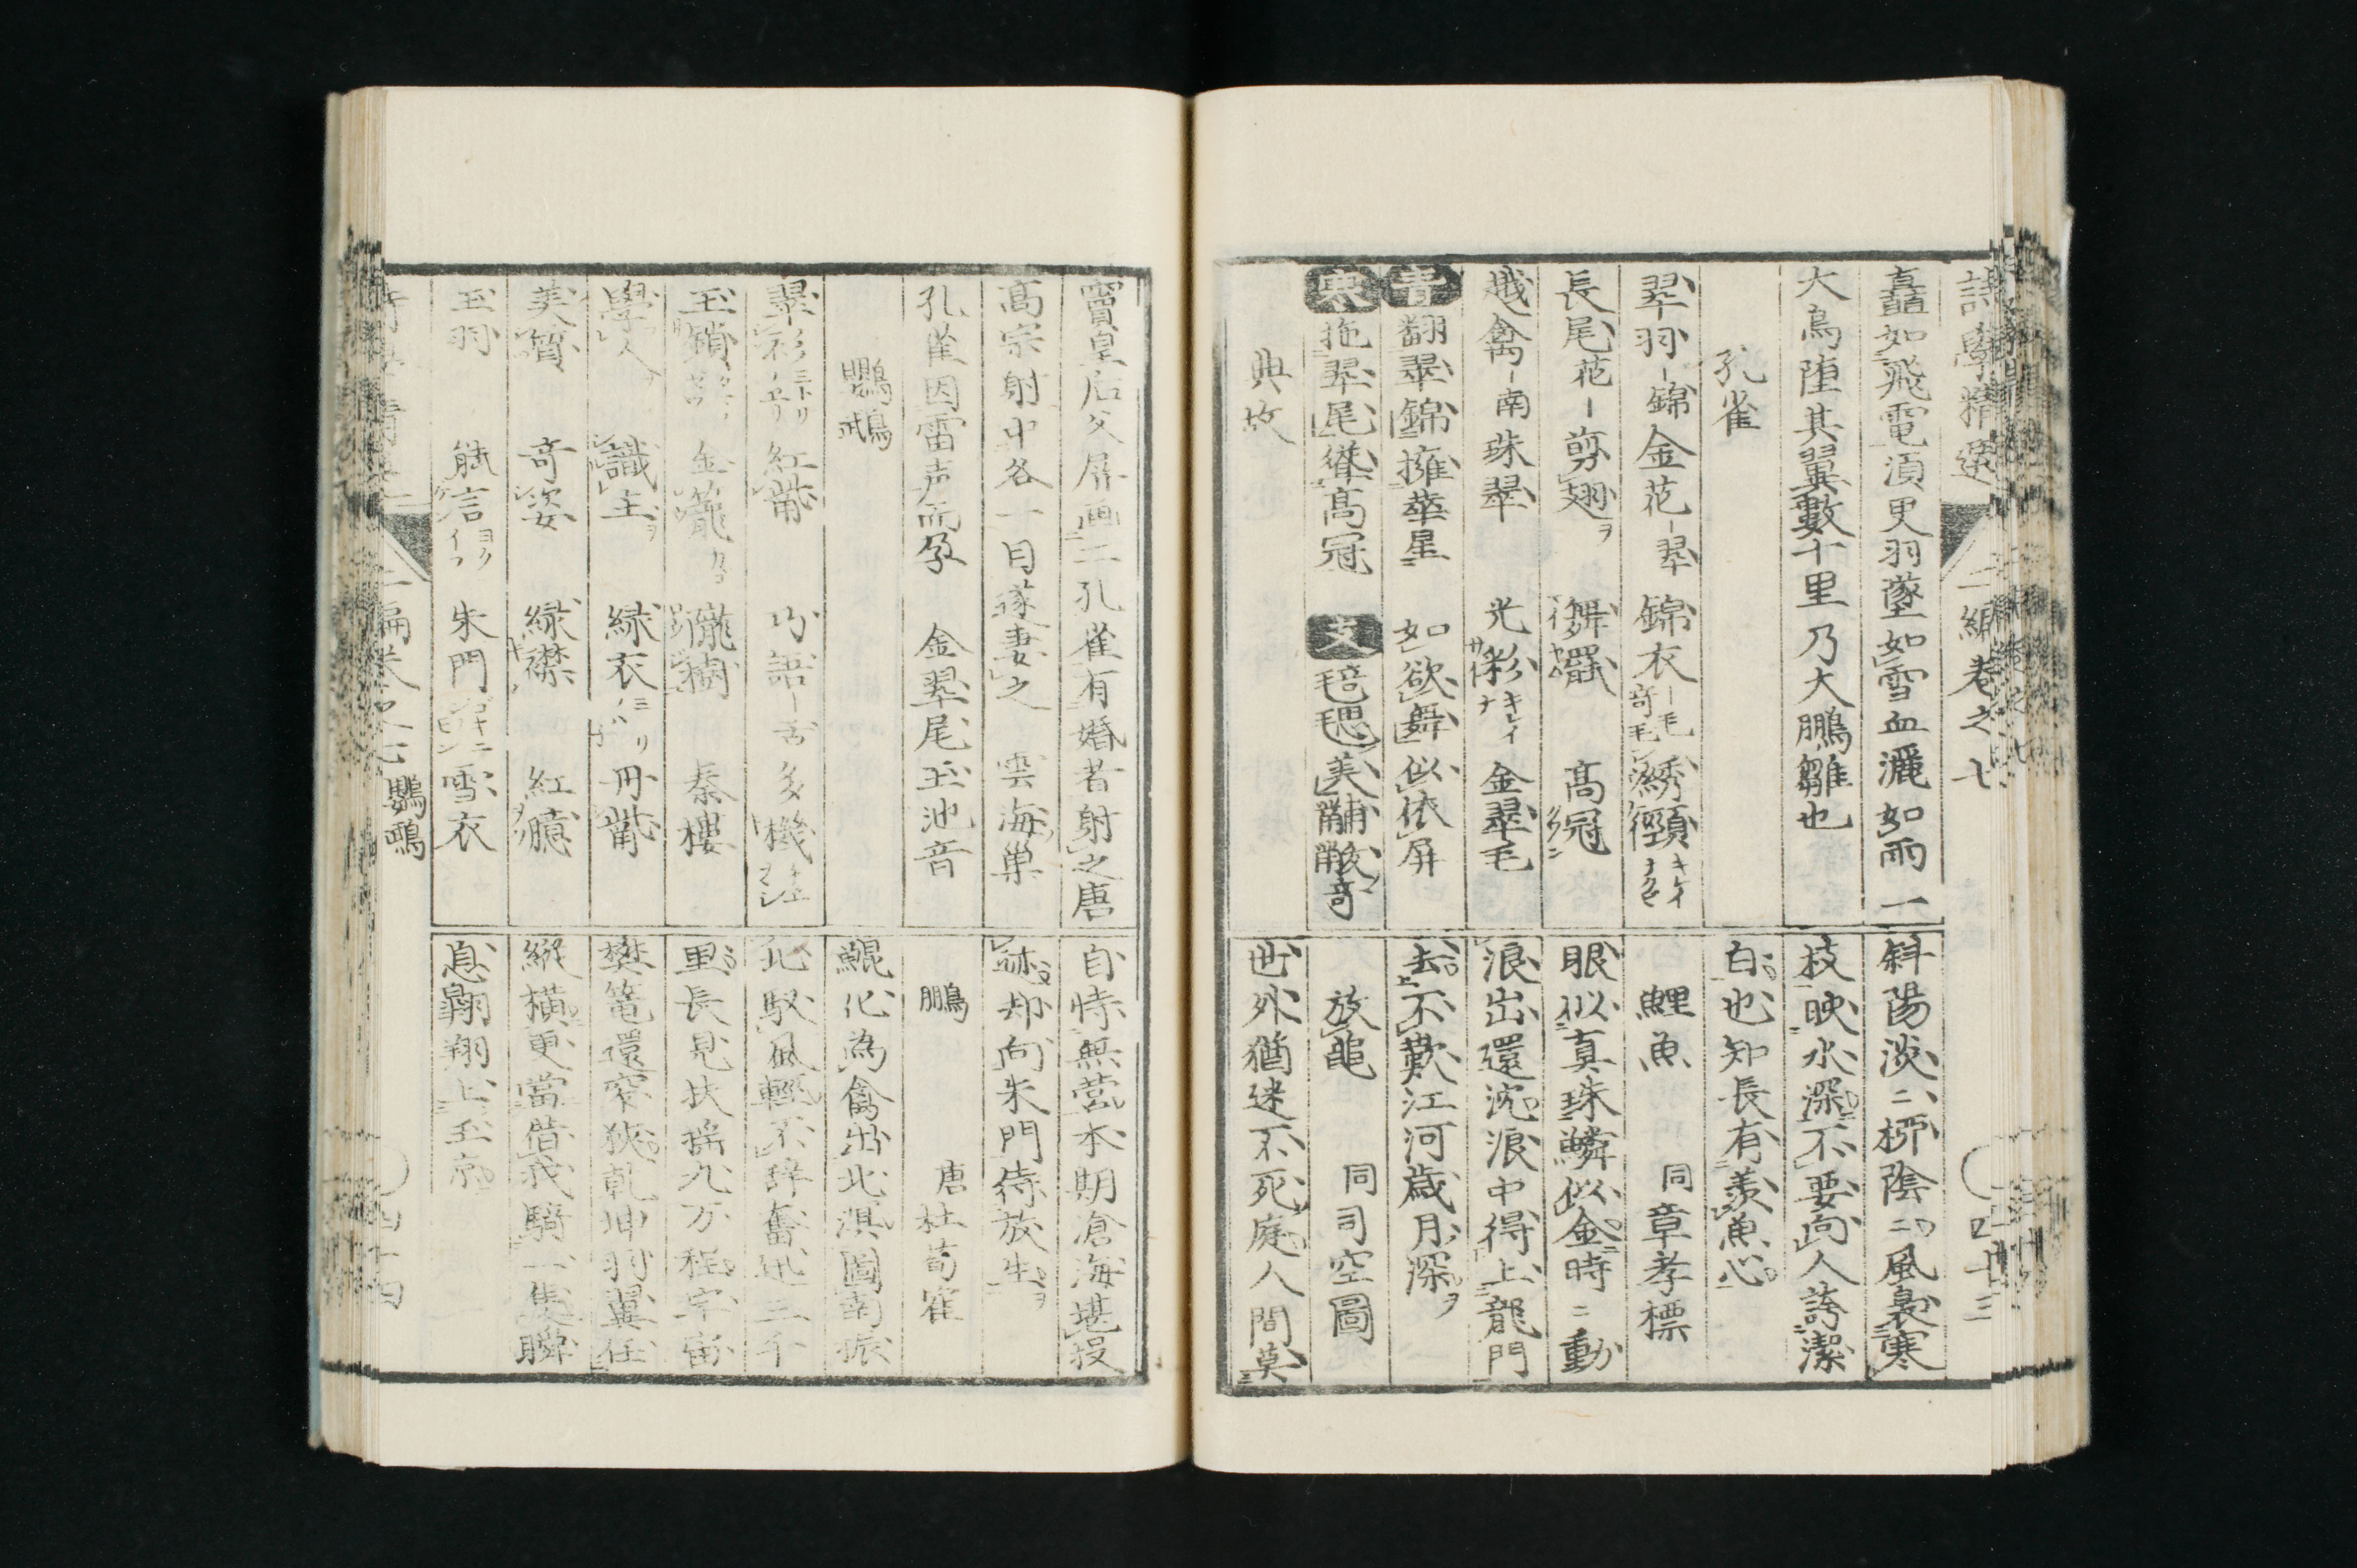 詩學精選 二編卷之七 四十三
矗如飛電湏臾羽墜如雪血灑如雨一
大鳥墮其翼數十里乃大鵬雛也
孔雀
翠羽-錦 金花-翠 錦衣-毛 奇毛 綉頸
長尾花-剪翅ヲ 儛罷 高冠
越禽-南 珠翠 光彩 キレイナ 金翠毛
青 翻翠錦 擁華星 如欲舞 似依屏
拖翠尾 聳高冠 支 毰毸美 黼黻奇
典故
斜陽淡二柳陰二風裊寒
枝映水深不要向人誇潔
白也知長有羨魚心
鯉魚 同 章孝標
眼似真珠鱗似金時二動
浪出還沈浪中得上龍門
去不歎江河歳月深ヲ
放龜 同 司空圖
世外猶迷不死庭人間莫
竇皇后父屏画二孔雀有婚者射之唐
高宗射中各一目遂妻之 雲海巣
孔雀因雷声而孕 金翠尾 玉池音
鸚鵡
翠衿 紅觜 巧語-舌 多機
玉鎖 金籠カゴ 雕櫳 秦樓
學人 識主ヲ 緑衣 丹觜
美質 奇姿 緑襟 紅臆
玉羽 能言ヨクイフ 朱門 雪衣
二編卷之七 鸚鵡 四十四
自恃無營本期倉海堪投
迹却向朱門待放生ヲ
鵬 唐 杜荀雀
鯤化為禽出北溟圖南振
北馭風輕不辞奮迅三千
里長見扶搖九万程宇宙
樊篭還窄狹乾坤羽翼任
縱橫更當借我騎一隻瞬
息翺翔上玉京